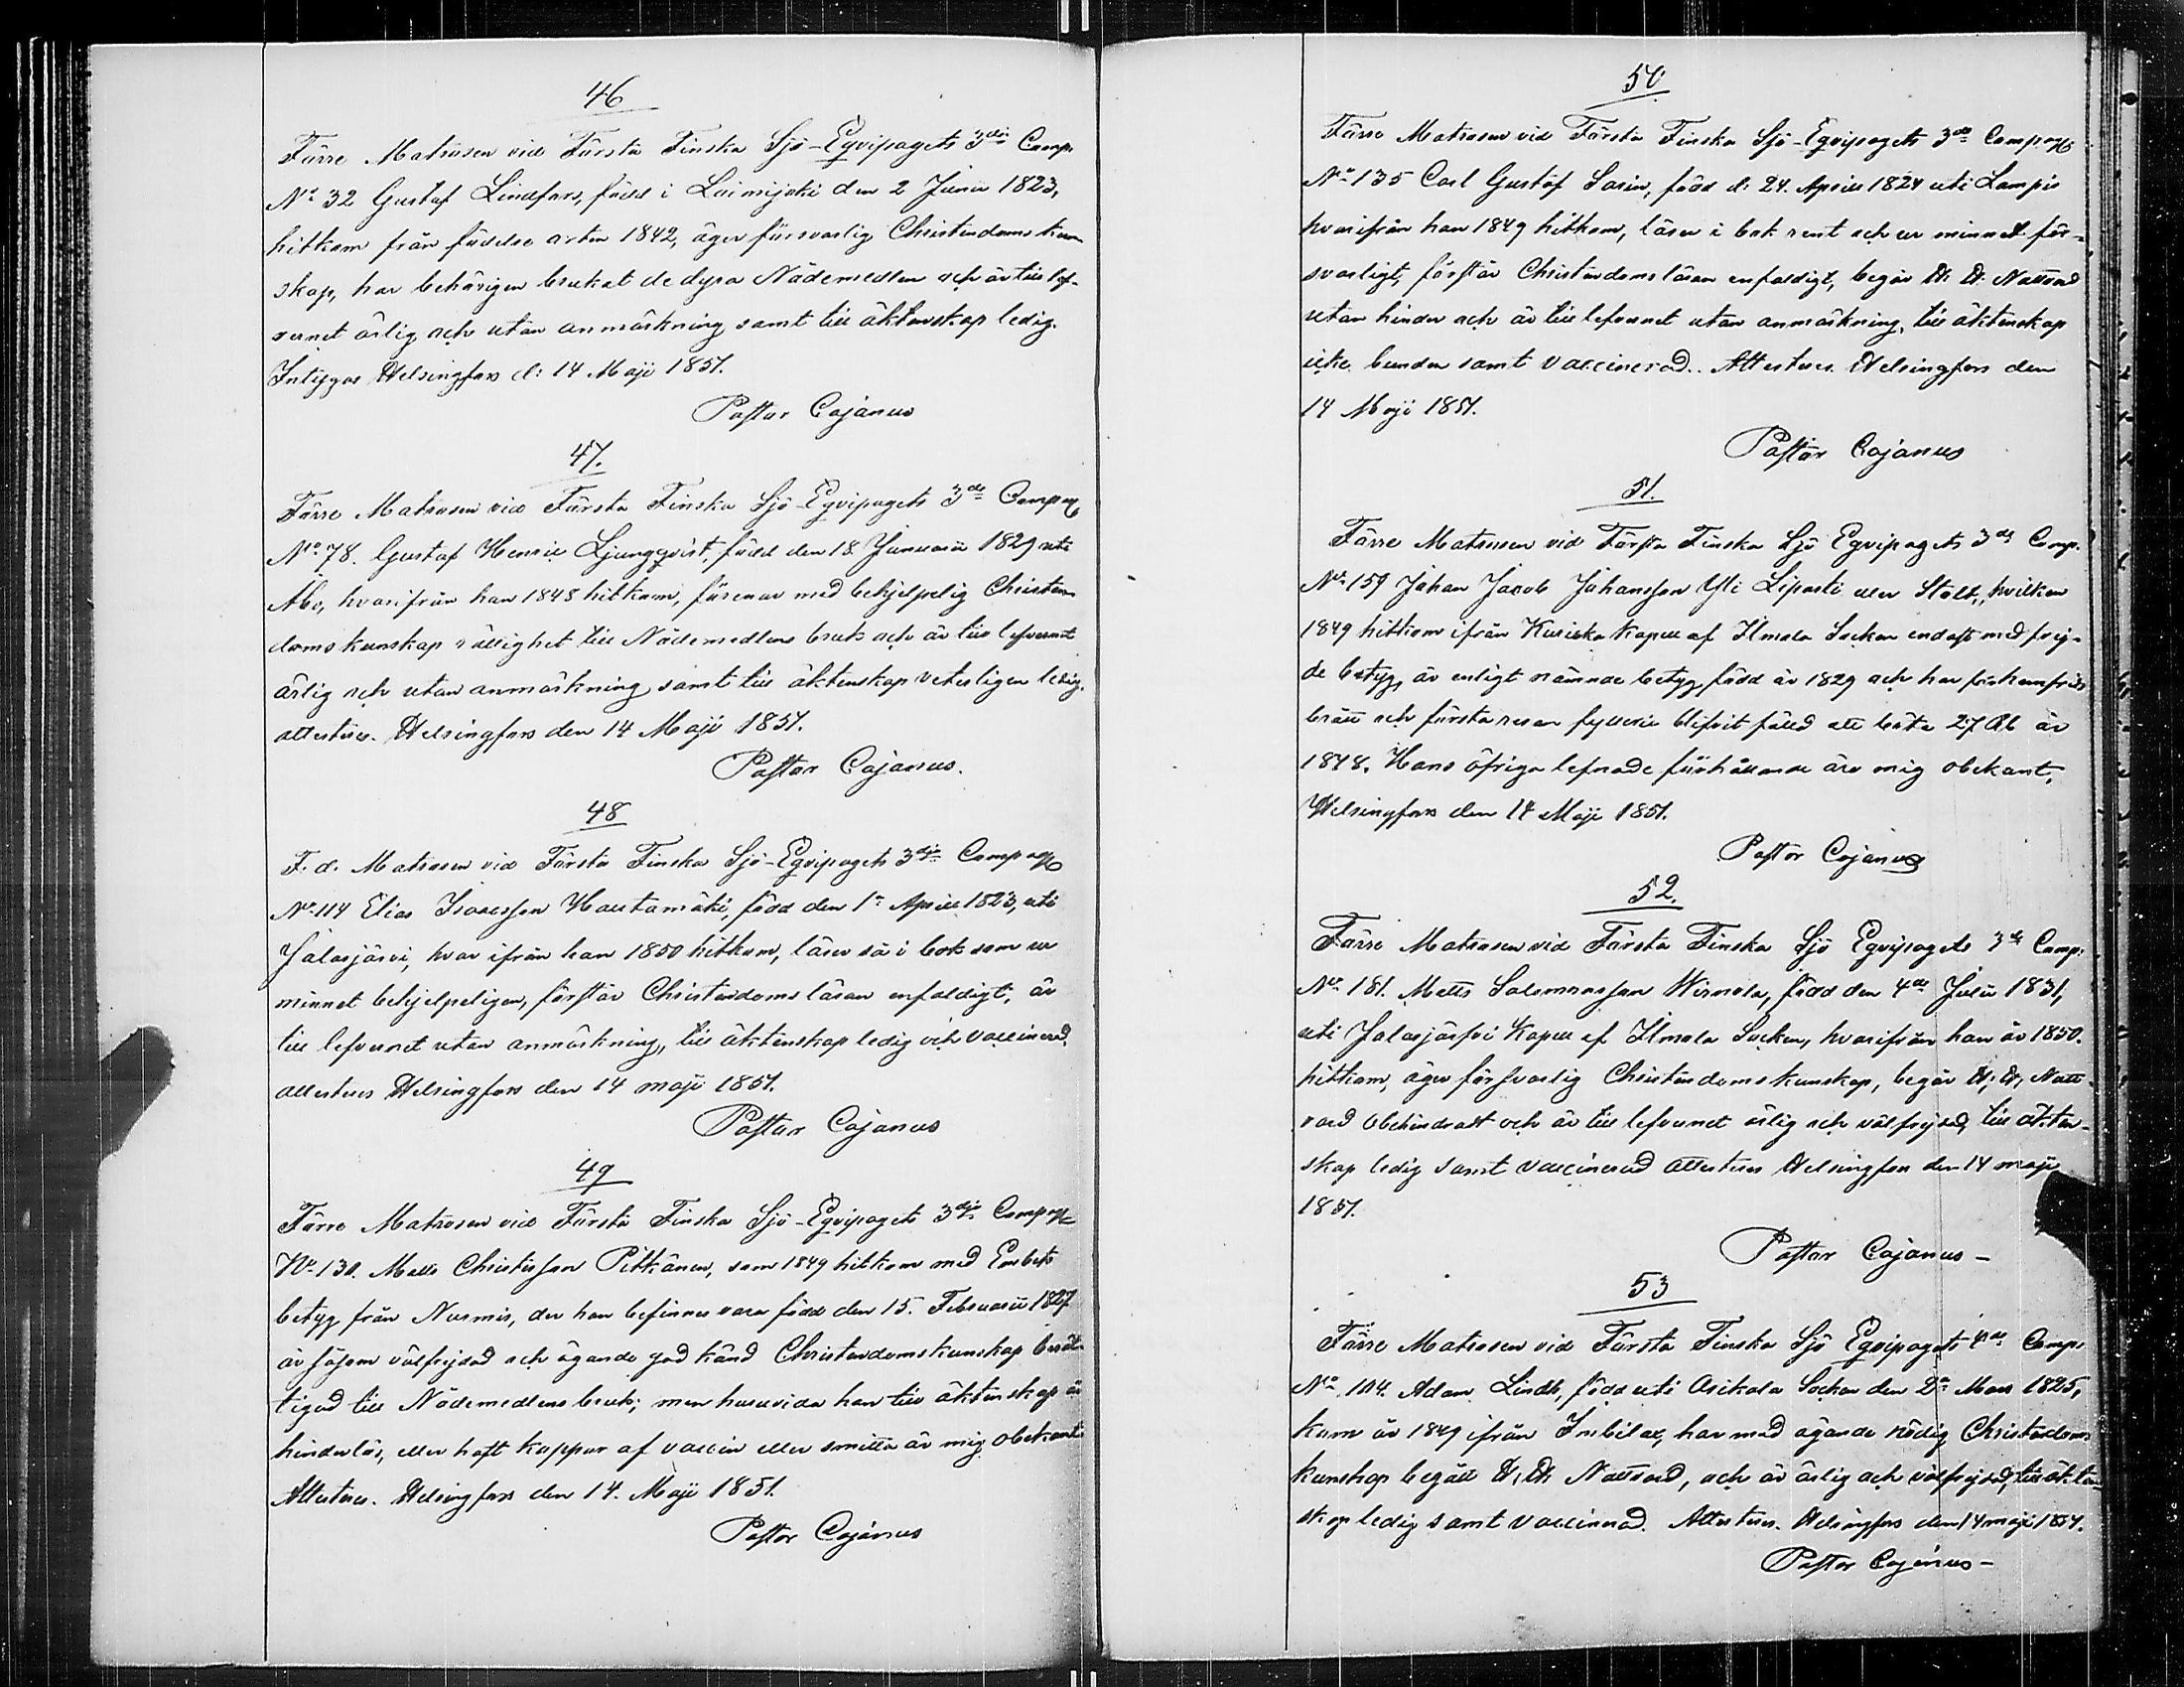 46
Förre Matrosen vid Första Finska Sjö-Eqvipagets 3dje Comp.
No 32 Gustaf Lindfors, född i Loimijoki den 2 Junii 1823,
hitkom från födelse orten 1842, äger försvarlig Christendoms kun-
skap, har behörigen brukat de dyra Nådemedlen och är till lef-
vernet ärlig och utan anmärkning samt till äktenskap ledig.
Intygas Helsingfors d: 14 Maji 1851.
Pastor Cajanus
47.
Förre Matrosen vid Första Finska Sjö-Eqvipagets 3de Comp.
No 78. Gustaf Henric Ljungqvist, född den 18 Januarii 1829 uti
Åbo, hvarifrån han 1848 hitkom, förenar med behjelpelig Christen-
doms kunskap rättighet till Nådemedlens bruk och är till lefvernet
ärlig och utan anmärkning samt till äktenskap veterligen ledig.
attesteras. Helsingfors den 14 Maji 1851.
Pastor Cajanus.
48
F. d. Matrosen vid Första Finska Sjö-Eqvipagets 3dje Comp.
No 114 Elias Isaacsson Hautamäki, född den 1a April 1823, uti
Jalasjärvi, hvar ifrån han 1850 hitkom, läser så i bok som ur
minnet behjelpeligen, förstår Christendoms läran enfaldigt, är
till lefvernet utan anmärkning, till äktenskap ledig och vaccinerad,
attesteras Helsingfors den 14 maji 1851.
Pastor Cajanus
49
Förre Matrosen vid Första Finska Sjö-Eqvipagets 3dje Comp.
No 130. Matts Christersson Pitkänen, som 1849 hitkom med Embets
betyg från Nurmis, der han befinnes vara född den 15. Februarii 1827
är såsom välfrejdad och ägande god känd Christendomskunskap berät-
tigad till Nådemedlens bruk; men huruvida han till äktenskap är
hinderlös, eller haft koppor af vaccin eller smitta är mig obekant.
Attesteras. Helsingfors den 14. Maji 1851.
Pastor Cajanus
50
Förre Matrosen vid Första Finska Sjö-Eqvipagets 3de Comp.
No 135 Carl Gustaf Sarin, född d: 24. April 1824 uti Lampis
hvarifrån han 1849 hitkom, läser i bok rent och ur minnet för-
svarligt, förstår Christendomsläran enfaldigt, begår H. H. Nattvard
utan hinder och är till lefvernet utan anmärkning, till äktenskap
icke bunden samt vaccinerad. Attesteras. Helsingfors den
14 Maji 1851.
Pastor Cajanus
51.
Förre Matrosen vid Första Finska Sjö Eqvipagets 3de Comp.
No 159 Johan Jacob Johansson Yli Liparti eller Stolt, hvilken
1849 hitkom ifrån Kurikka Kapell af Ilmola Socken endast med frej-
de betyg, är enligt nämnde betyg född år 1829 och har för hemfrids
brått och första resan fylleri blifvit fälld att böta 27 Rb år
1848. Hans öfriga lefnads förhållande äro mig obekant,
Helsingfors den 14 Maji 1851.
Pastor Cajanus
52.
Förre Matrosen vid Första Finska Sjö Eqvipagets 3de Comp.
No 181. Matts Salomonsson Wirmola, född den 4de Julii 1831,
uti Jalasjärfvi Kapell af Ilmola Socken, hvarifrån han år 1850.
hitkom, äger försvarlig Christendomskunskap, begår H. H. Natt-
vard obehindradt och är till lefvernet ärlig och välfrejdad, till äkten-
skap ledig samt vaccinerad attesteras Helsingfors den 14 maji
1851.
Pastor Cajanus -
53
Förre Matrosen vid Första Finska Sjö Eqvipagets 4de Comp.
No 104. Adam Lindh, född uti Asikkala Socken den 2a Mars 1825,
kom år 1849 ifrån Imbilax, har med ägande nödig Christendoms
kunskap begått H. H. Nattvard, och är ärlig och välfrejdad, till äkten-
skap ledig samt vaccinerad. Attesteras. Helsingfors den 14 maji 1851.
Pastor Cajanus -